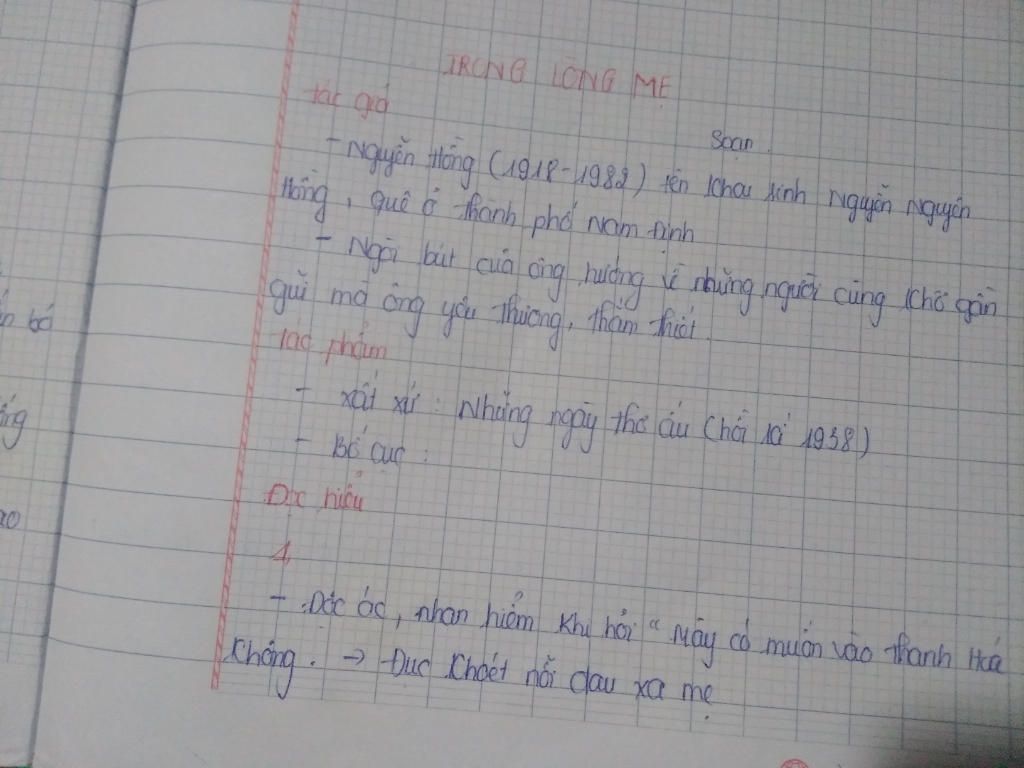 TRONG LÒNG MẸ
Tác giả
Soạn.
- Nguyên Hồng (1918-1982) tên khai sinh Nguyễn Nguyên
Hồng, quê ở thành phố Nam Định
- Ngòi bút của ông hướng về những người cùng khổ gần
gũi mà ông yêu thương, thắm thiết.
Tác phẩm
- xuất xứ: Những ngày thơ ấu (hồi kí 1938)
- Bố cục:
Đọc hiểu
1,
- Độc ác, nham hiểm khi hỏi "Mày có muốn vào Thanh Hoá
không. → Đục khoét nỗi đau xa mẹ
n bó
ng
ao